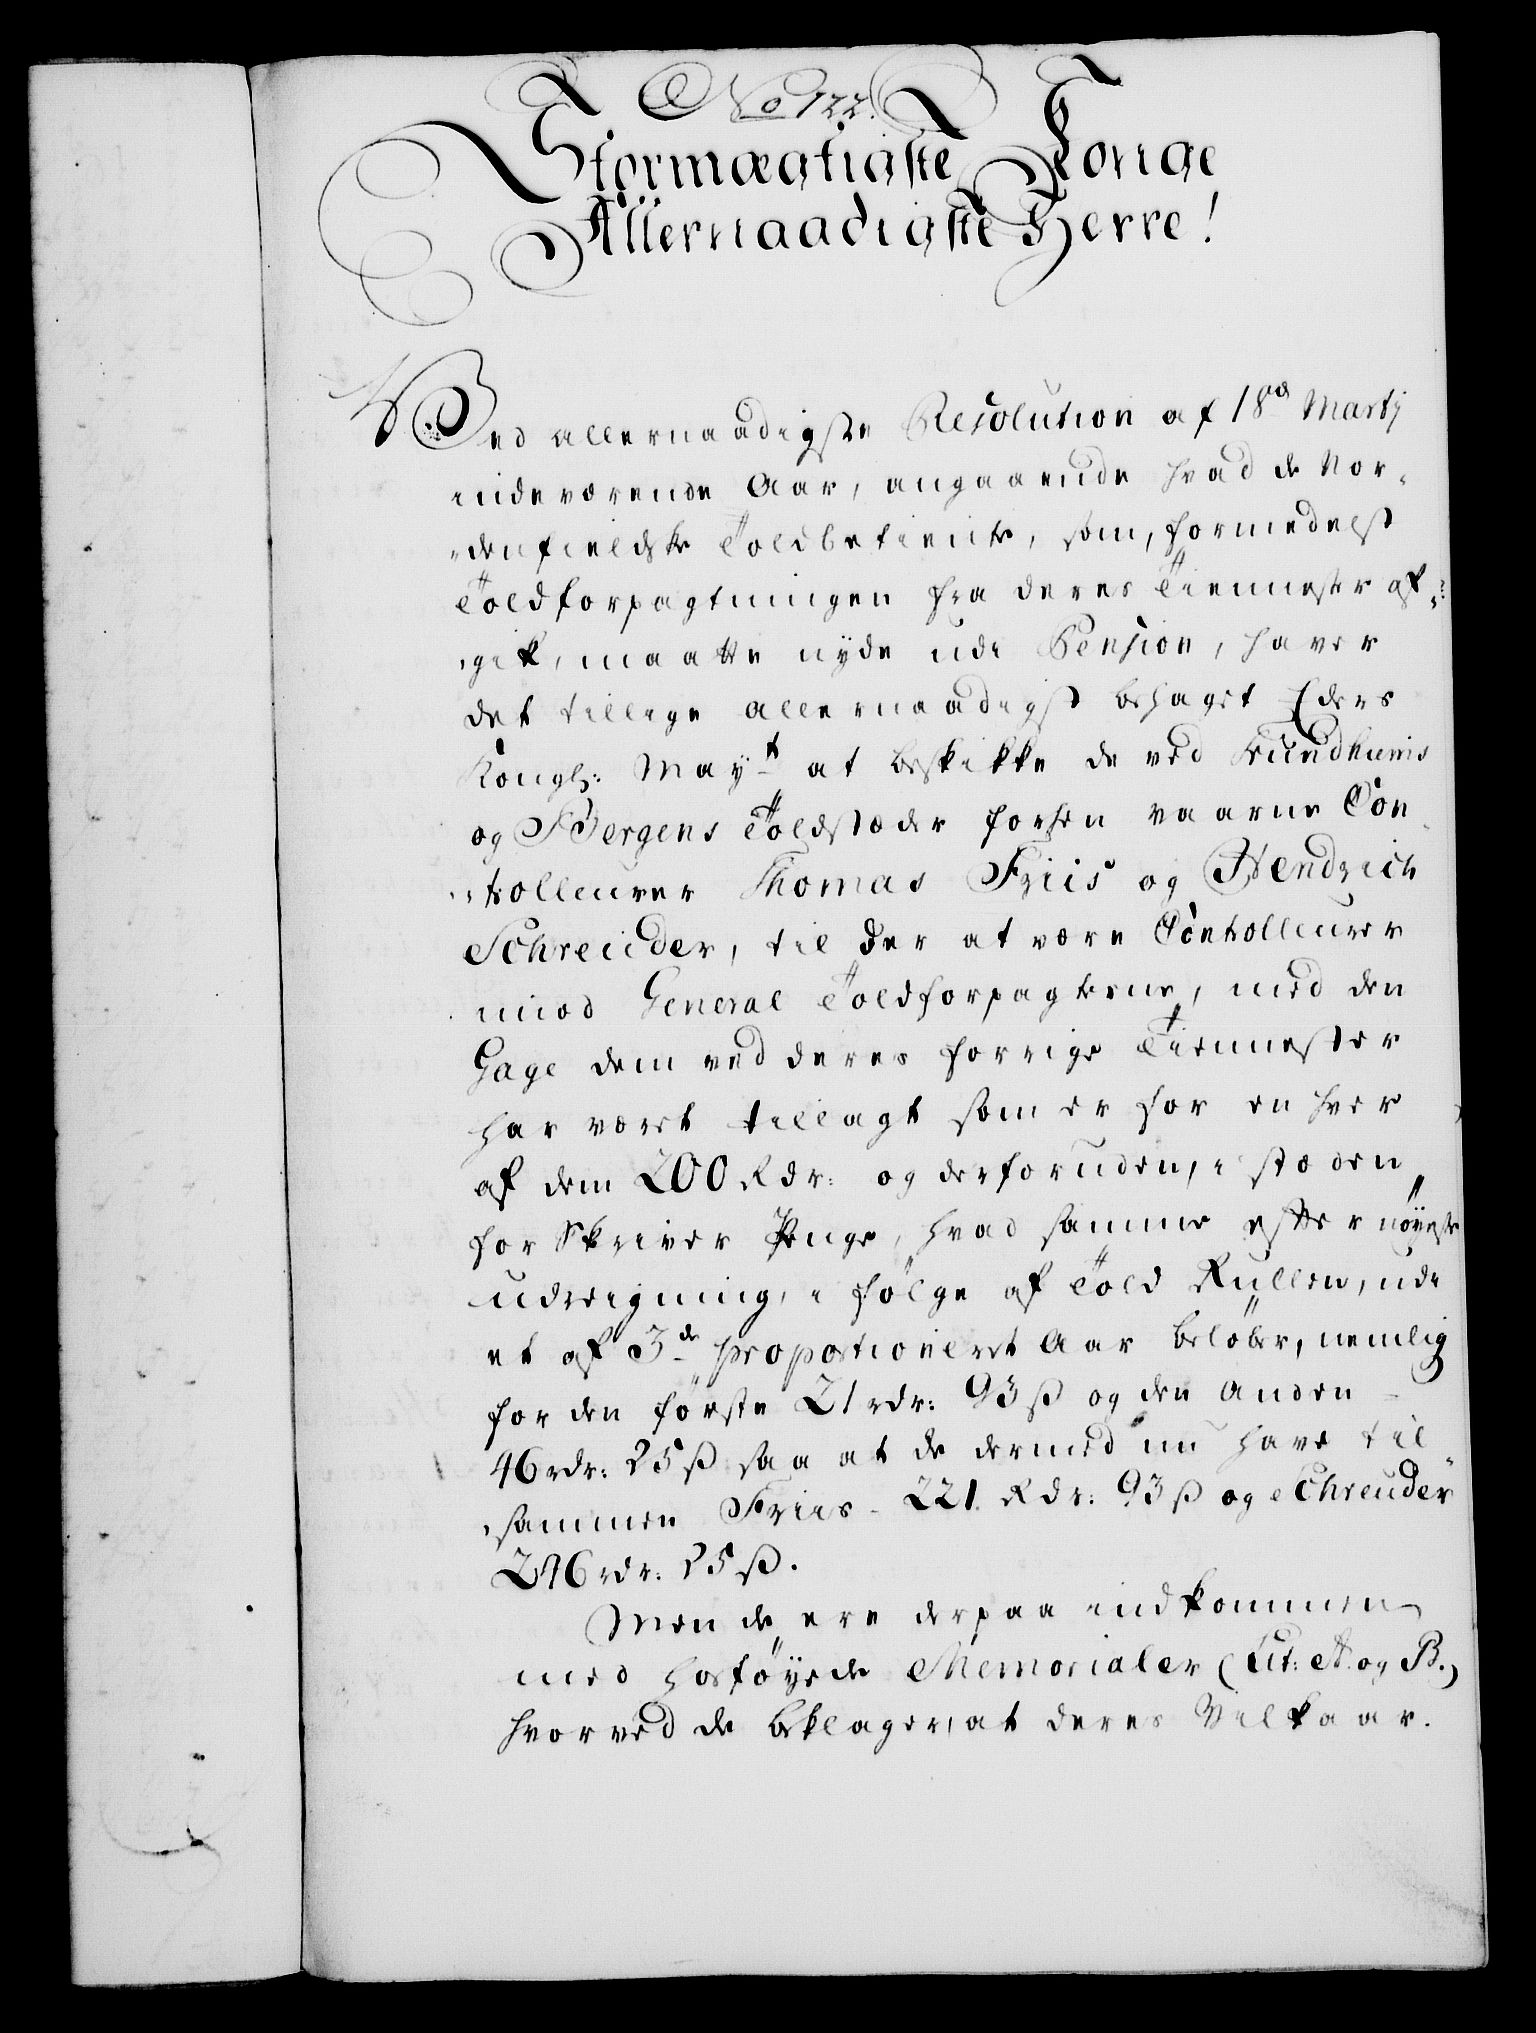 No 122.
Stormægtigste Konge
Allernaadigste Herre!
Ved allernaadigste Resolution af 18d Martij
indeværende Aar, angaaende hvad de Nor-
-denfieldske Toldbetiente, som, formedelst
Toldforpagtningen fra deres Tiennester af-
-gik, maatte nyde udi Pension, haver
det tillige allernaadigst behaget Eders
Kongl: Mayt at beskikke de ved Trundhiems
og Bergens Toldstæder forhen vaarne Con-
-trolleurer Thomas Friis og Hendrich
Schreuder, til der at være Controlleurer
mod General Toldforpagterne, med den
Gage dem ved deres forrige Tiennester
har været tillagt som er for en hver
af dem 200 Rdr: og derforuden, i stæden
for Skriver Penge, hvad samme efter nøyeste
udregning, i følge af Told Rullen, udi
et af 3de proportioneret Aar beløber, nemlig
for den første 21 rdr: 93 ß og den anden
46 rdr: 25 ß saa at de dermed nu have til
sammen Friis - 221 Rdr: 93 ß og Schreuder
246 rdr: 25 ß.
Men de ere derpaa indkommen
med hosføyede Memorialer (Lit: A. og B.)
hvorved de beklager, at deres Vilkaar.